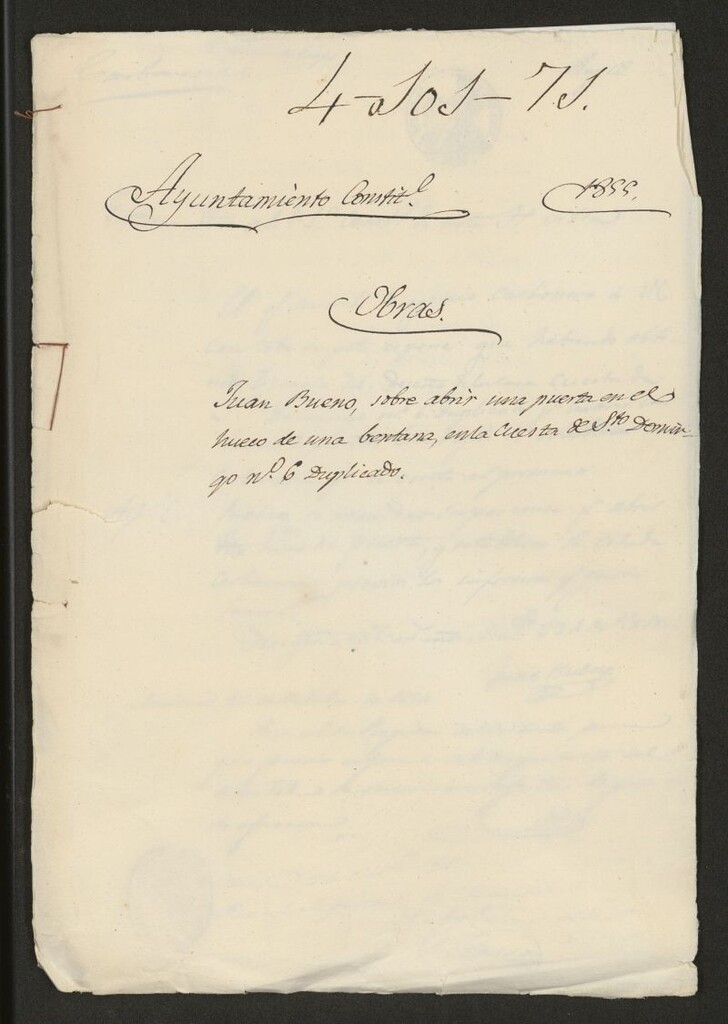 4-505-71.
Ayuntamiento Constit.l
1855.
Obras.
Juan Bueno, sobre abrir una puerta en el
hueco de una bentana, en la Cuesta de S.to Domin-
go n.o 6 Duplicado.